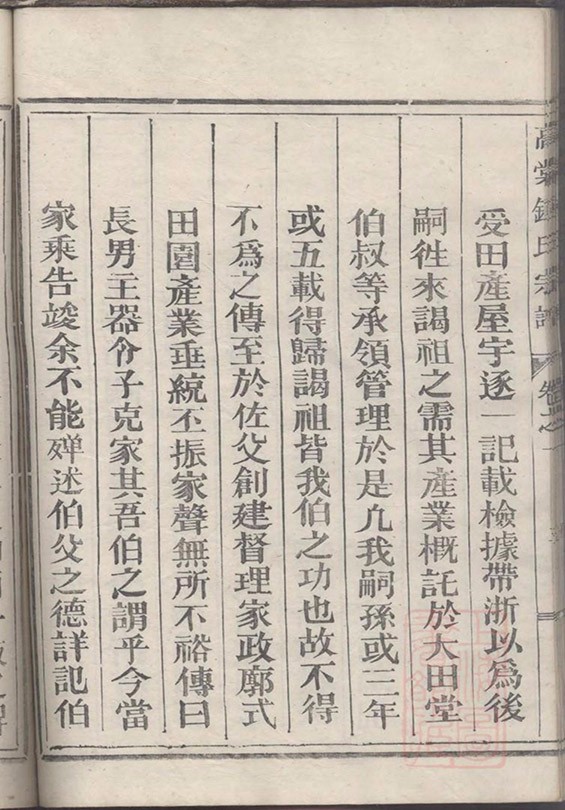 受田產屋宇逐一記載檢據帶浙以爲後
嗣徃來謁祖之需其產業概託於大田堂
伯叔等承領管理於是凢我嗣孫或三年
或五載得歸謁祖皆我伯之功也故不得
不爲之傳至於佐父創建督理家政廓式
田園產業垂統丕振家聲無所不裕傳曰
長男主器令子克家其吾伯之謂乎今當
家乘告竣余不能殫述伯父之德詳記伯
氏宗譜
卷之一